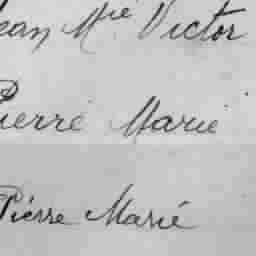 Jean Mie Victor
Pierre Marie
Pierre Marie